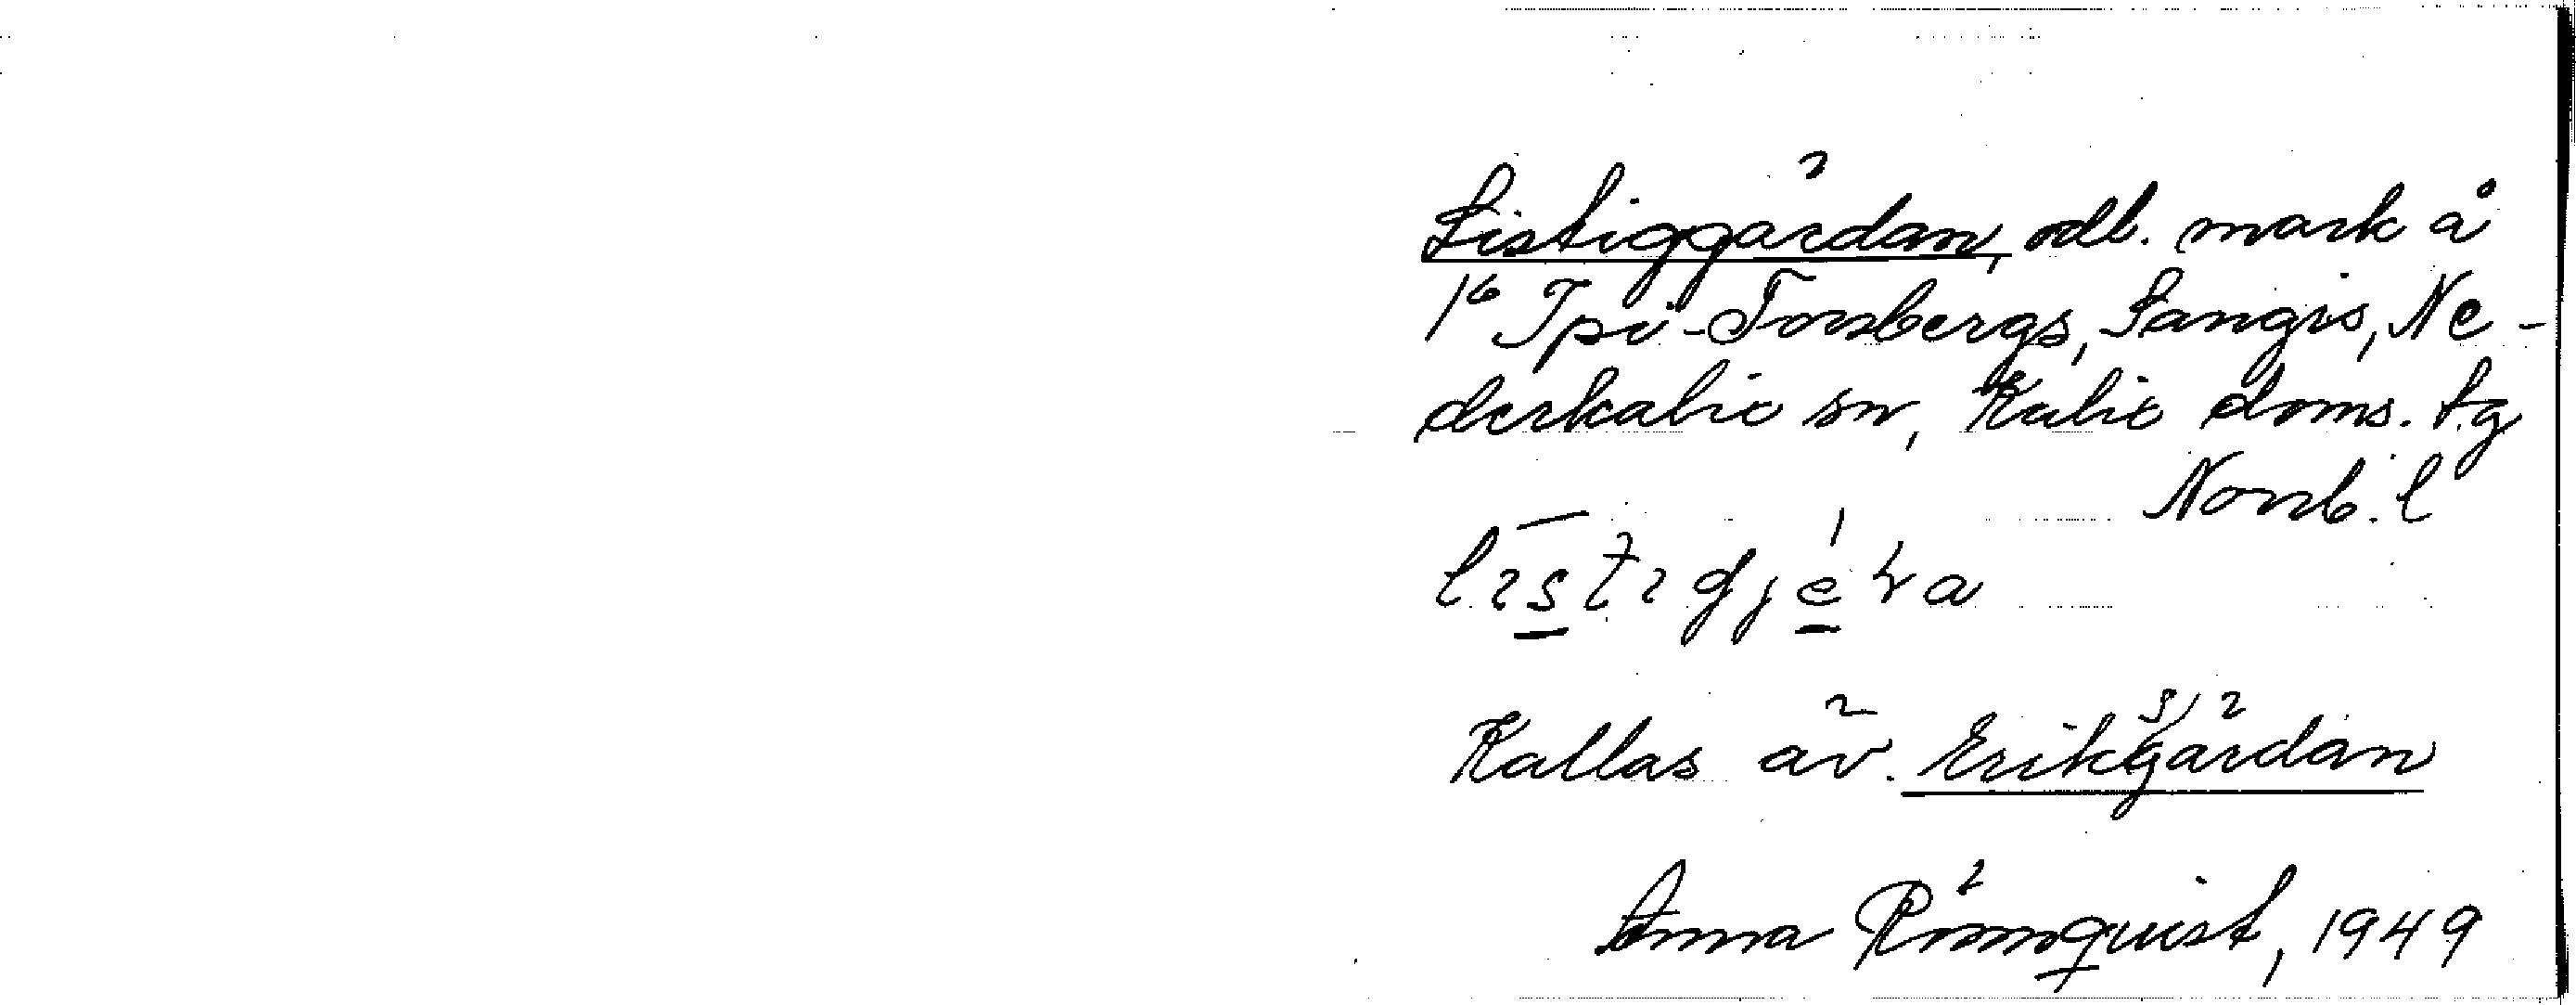 Listiggärdan, odl. mark å
1⁶ Ipö-Forsbergs, Sangis, Ne-
derkalix sn, Kalix doms. tg
Norrb. l
Kallas äv. Eriksgärdan
Anna Rönnquist, 1949